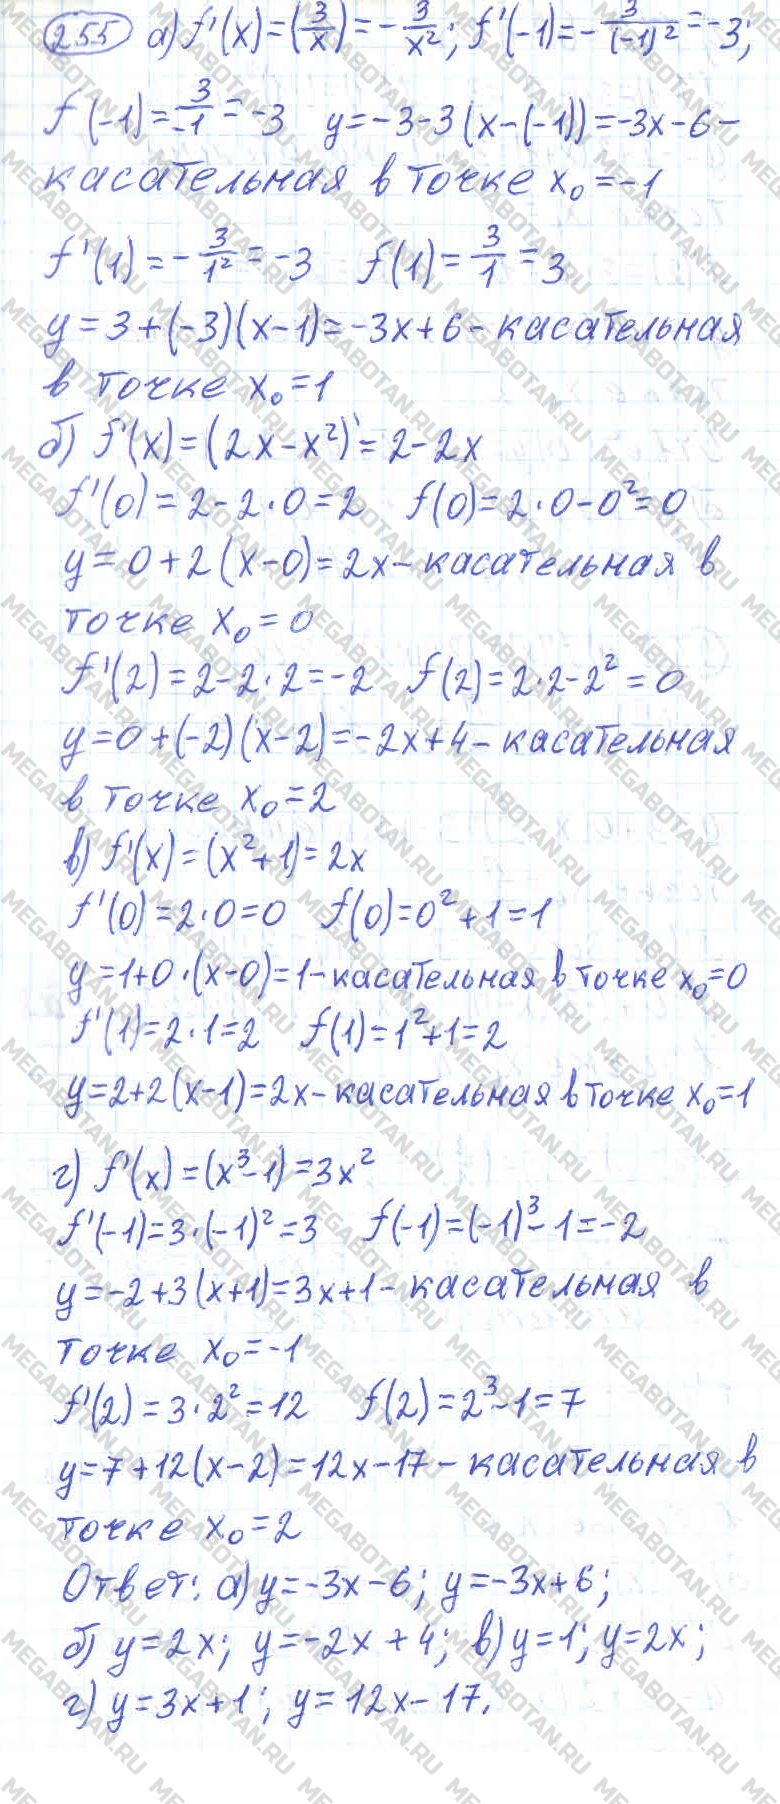 255 а) f'(x)=(3/x)=-3/x²; f'(-1)=-3/(-1)²=-3;
f(-1)=3/-1=-3 y=-3-3(x-(-1))=-3x-6-
касательная в точке x₀=-1
f'(1)=-3/1²=-3 f(1)=3/1=3
y=3+(-3)(x-1)=-3x+6-касательная
в точке x₀=1
б) f'(x)=(2x-x²)'=2-2x
f'(0)=2-2·0=2 f(0)=2·0-0²=0
y=0+2(x-0)=2x-касательная в
точке x₀=0
f'(2)=2-2·2=-2 f(2)=2·2-2²=0
y=0+(-2)(x-2)=-2x+4-касательная
в точке x₀=2
в) f'(x)=(x²+1)=2x
f'(0)=2·0=0 f(0)=0²+1=1
y=1+0·(x-0)=1-касательная в точке x₀=0
f'(1)=2·1=2 f(1)=1²+1=2
y=2+2(x-1)=2x-касательная в точке x₀=1
г) f'(x)=(x³-1)=3x²
f'(-1)=3·(-1)²=3 f(-1)=(-1)³-1=-2
y=-2+3(x+1)=3x+1-касательная в
точке x₀=-1
f'(2)=3·2²=12 f(2)=2³-1=7
y=7+12(x-2)=12x-17-касательная в
точке x₀=2
Ответ: а) y=-3x-6; y=-3x+6;
б) y=2x; y=-2x+4; в) y=1; y=2x;
г) y=3x+1; y=12x-17.
MEGABOTAN.RU